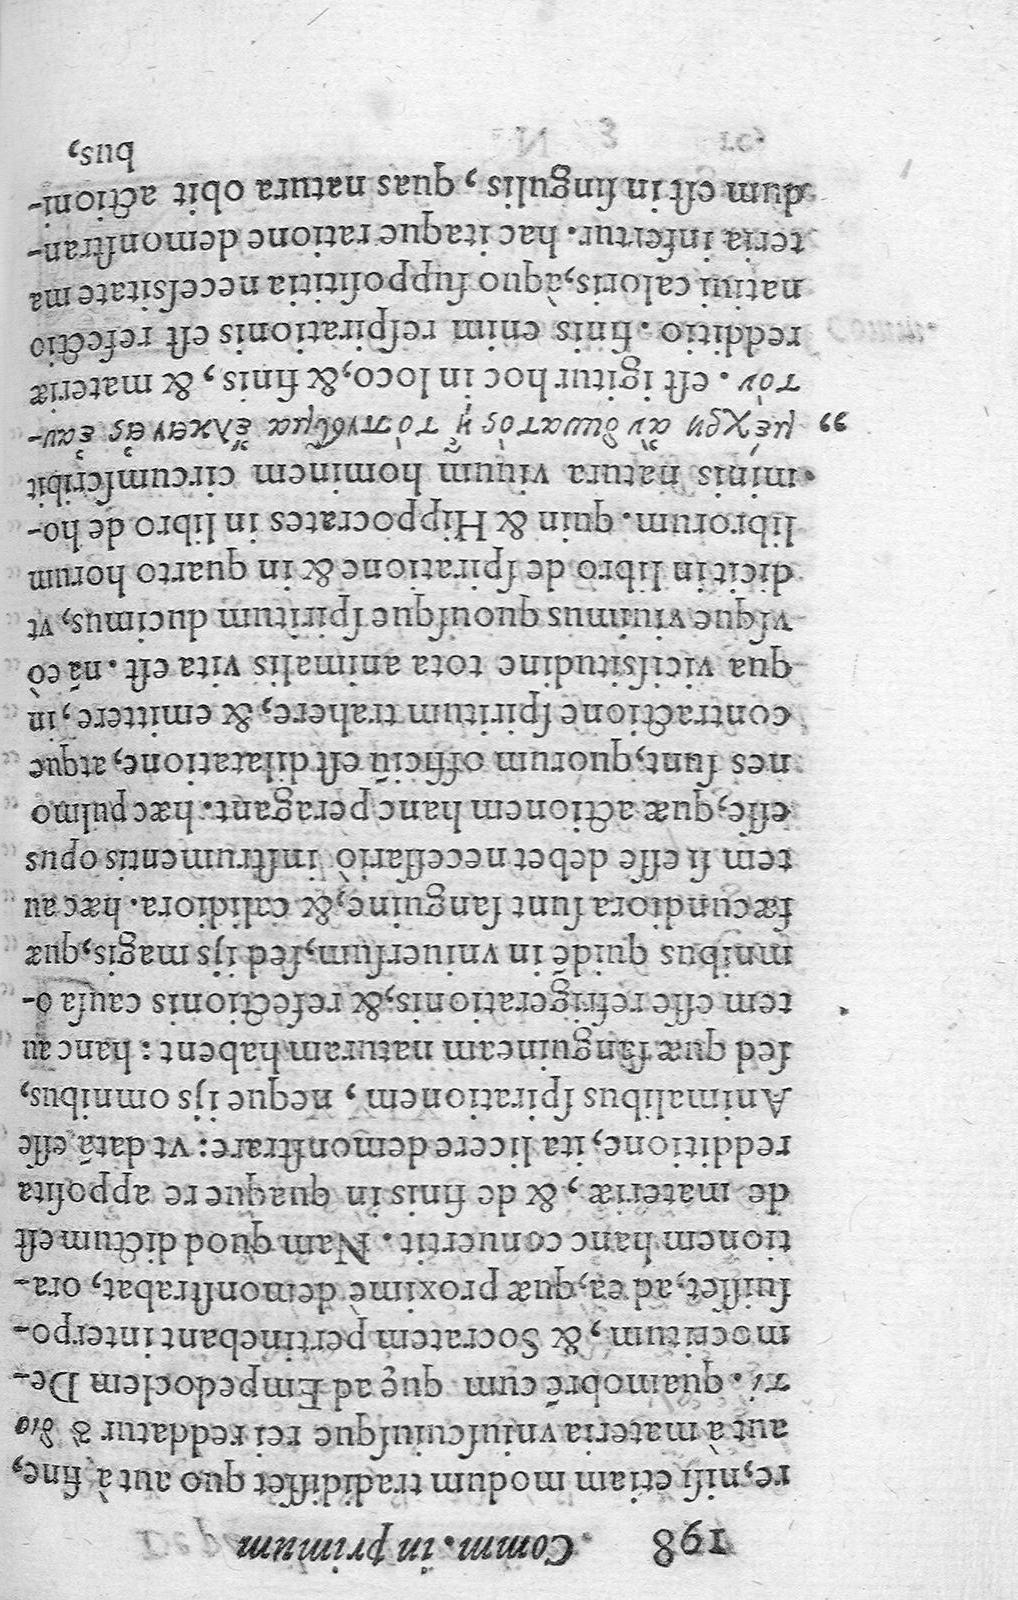 198 Comm. in primum
re, nisi etiam modum tradidisset quo aut à fine,
aut à materia vniuscuiusque rei reddatur τὸ διο
τι. quamobrē cum quę ad Empedoclem De-
mocritum, & Socratem pertinebant interpo-
suisset, ad ea, quæ proximè demonstrabat, ora-
tionem hanc conuertit. Nam quod dictum est
de materiæ, & de finis in quaque re apposita
redditione, ita licere demonstrare: vt datā esse
Animalibus spirationem, neque ijs omnibus,
sed quæ sāguineam naturam habent: hanc au
tem esse refrigerationis, & refectionis causa o-
mnibus quidē in vniuersum, sed ijs magis, quæ
fæcundiora sunt sanguine, & calidiora. hæc au
tem si esse debet necessariò instrumentis opus
esse, quæ actionem hanc peragant. hæc pulmo
nes sunt, quorum officiū est dilatatione, atque
contractione spiritum trahere, & emittere, in
qua vicissitudine tota animalis vita est. nā eò
vsque viuimus quousque spiritum ducimus, vt
dicit in libro de spiratione & in quarto horum
librorum. quin & Hippocrates in libro de ho-
minis natura viuum hominem circumscribit
„ μέχρι ἂν δυνατὸς ᾖ τὸ πνεῦμα ἕλκειν εἰς ἑαυ-
τόν. est igitur hoc in loco, & finis, & materiæ
redditio. finis enim respirationis est refectio
natiui caloris, à quo suppositia necessitate ma
teria infertur. hac itaque ratione demonstran-
dum est in singulis, quas natura obit actioni-
bus,